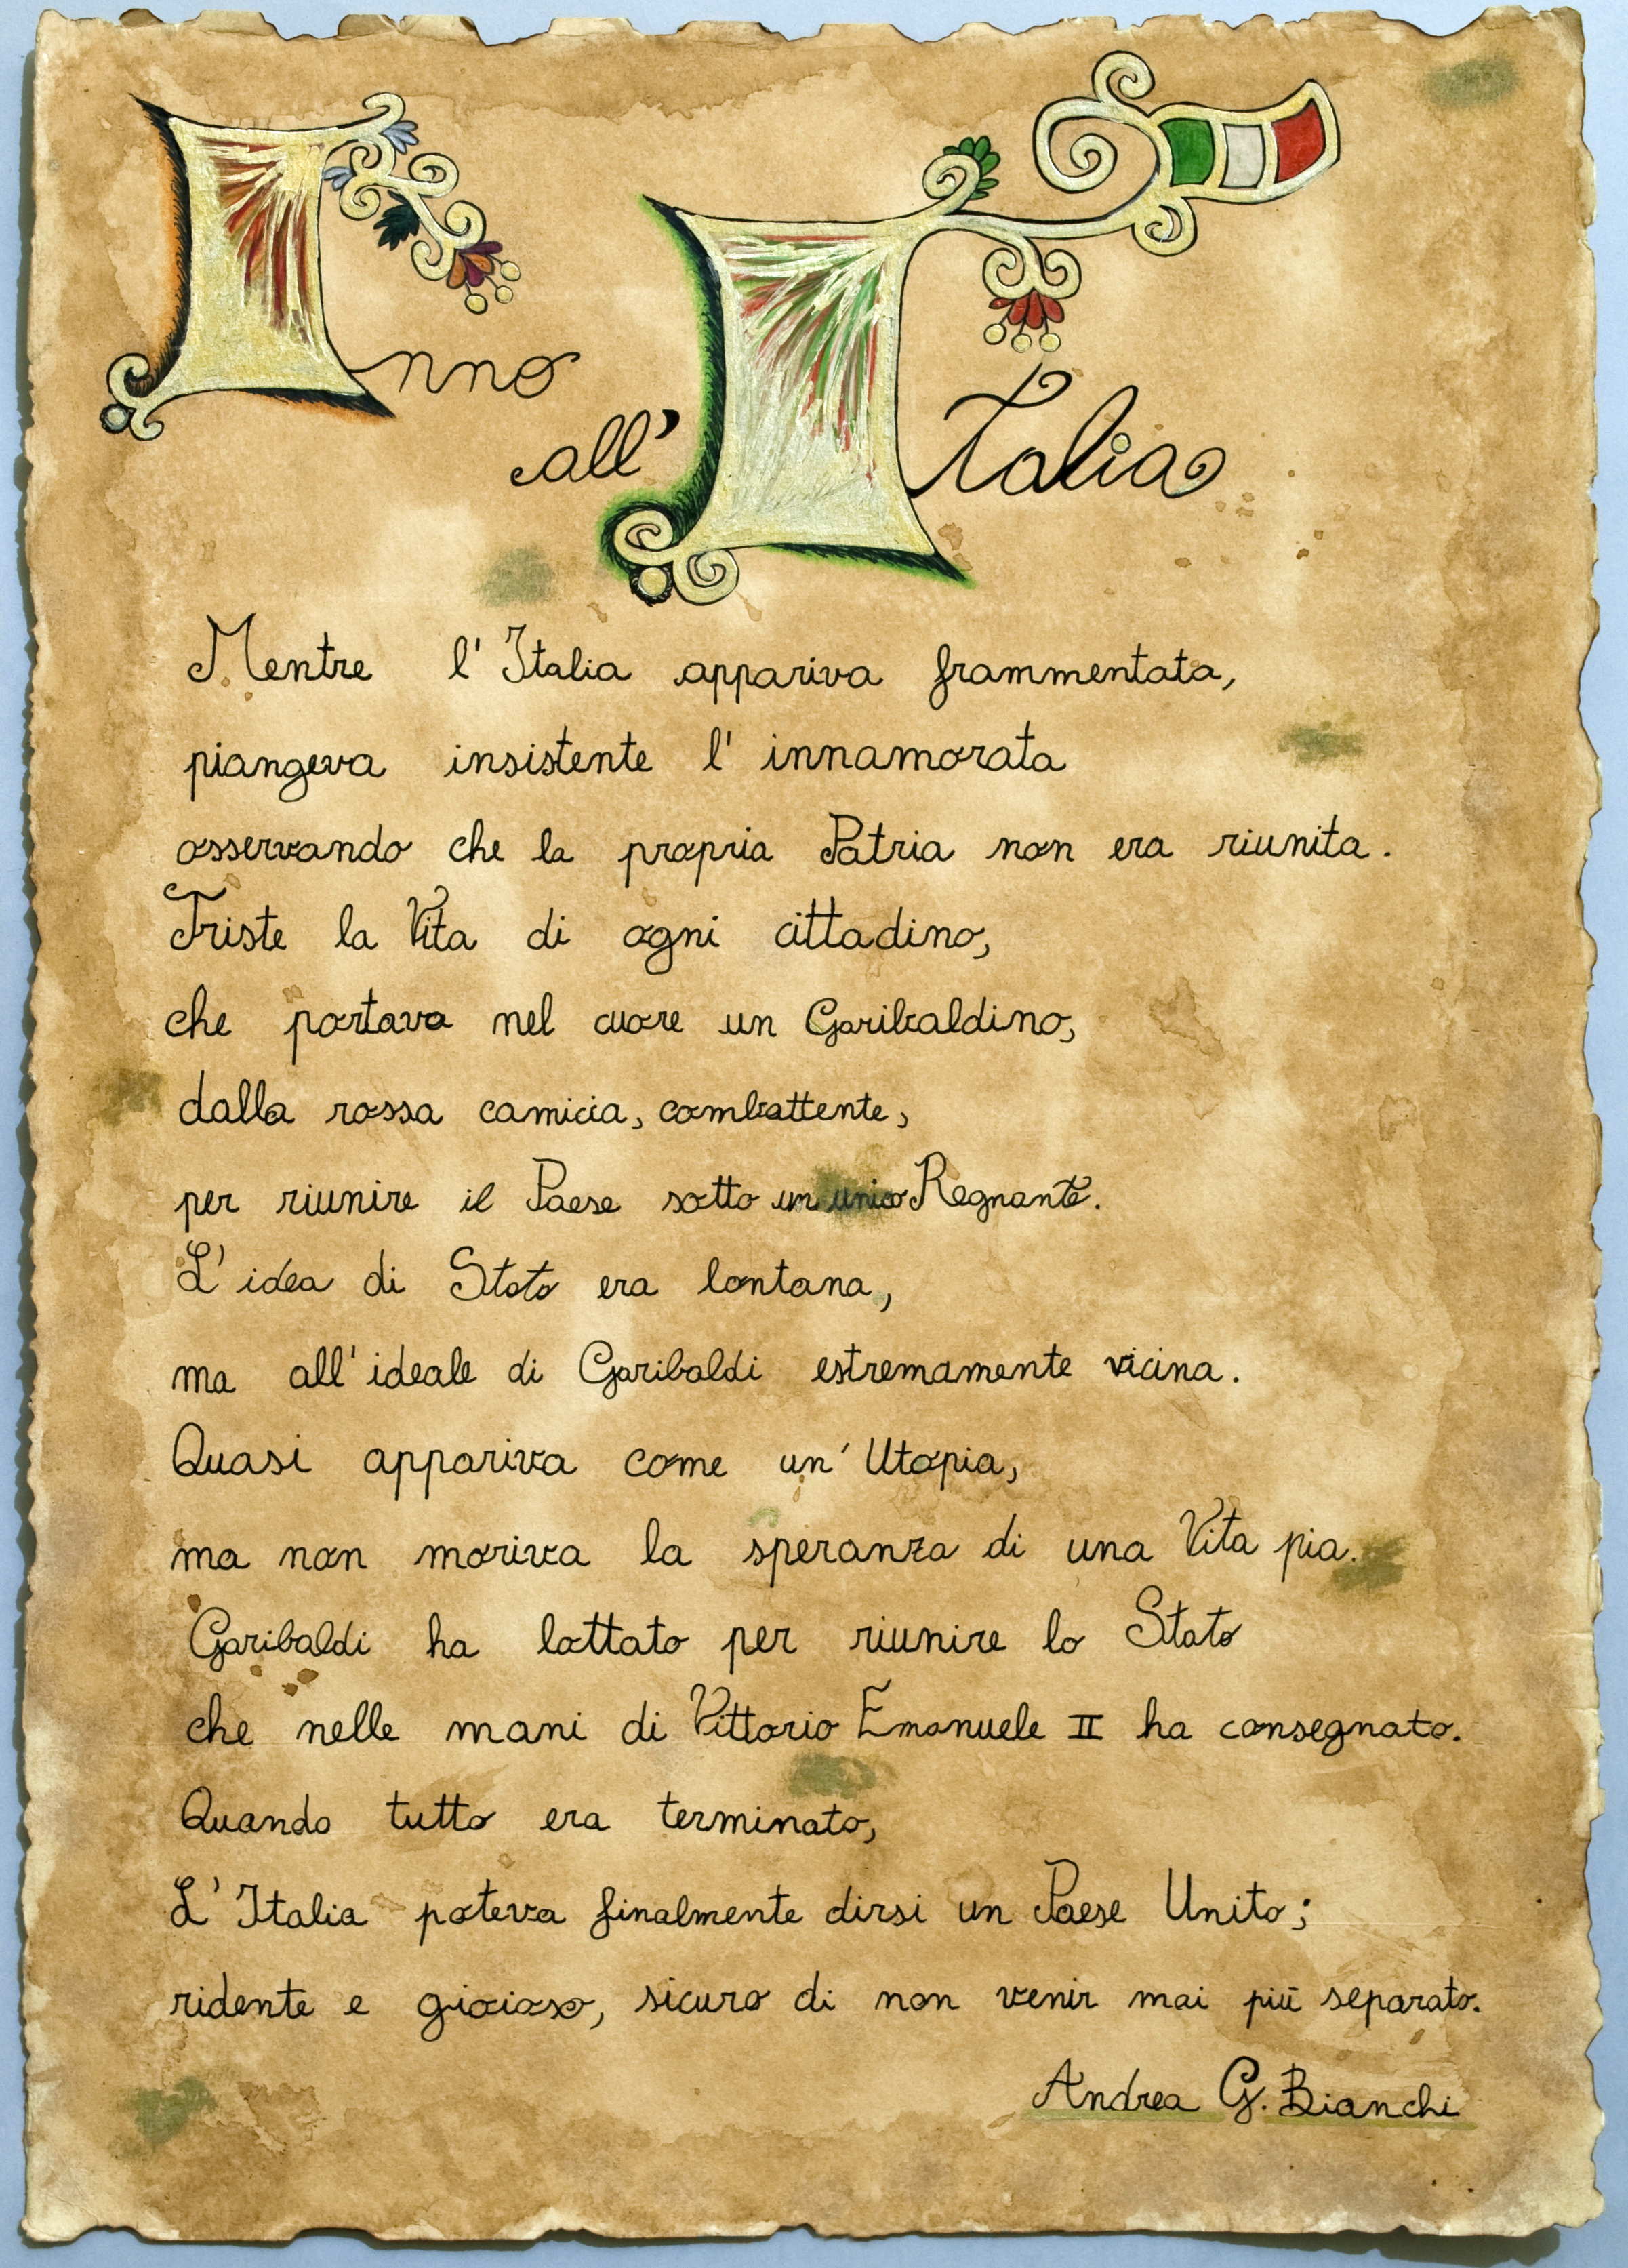 Inno
all'Italia
Mentre l'Italia appariva frammentata,
piangeva insistente l'innamorata
osservando che la propria Patria non era riunita.
Triste la Vita di ogni cittadino,
che portava nel cuore un Garibaldino,
dalla rossa camicia, combattente,
per riunire il Paese sotto un unico Regnante.
L'idea di Stato era lontana,
ma all'ideale di Garibaldi estremamente vicina.
Quasi appariva come un'Utopia,
ma non moriva la speranza di una Vita pia.
Garibaldi ha lottato per riunire lo Stato
che nelle mani di Vittorio Emanuele II ha consegnato.
Quando tutto era terminato,
L'Italia poteva finalmente dirsi un Paese Unito;
ridente e gioioso, sicuro di non venir mai più separato.
Andrea G. Bianchi